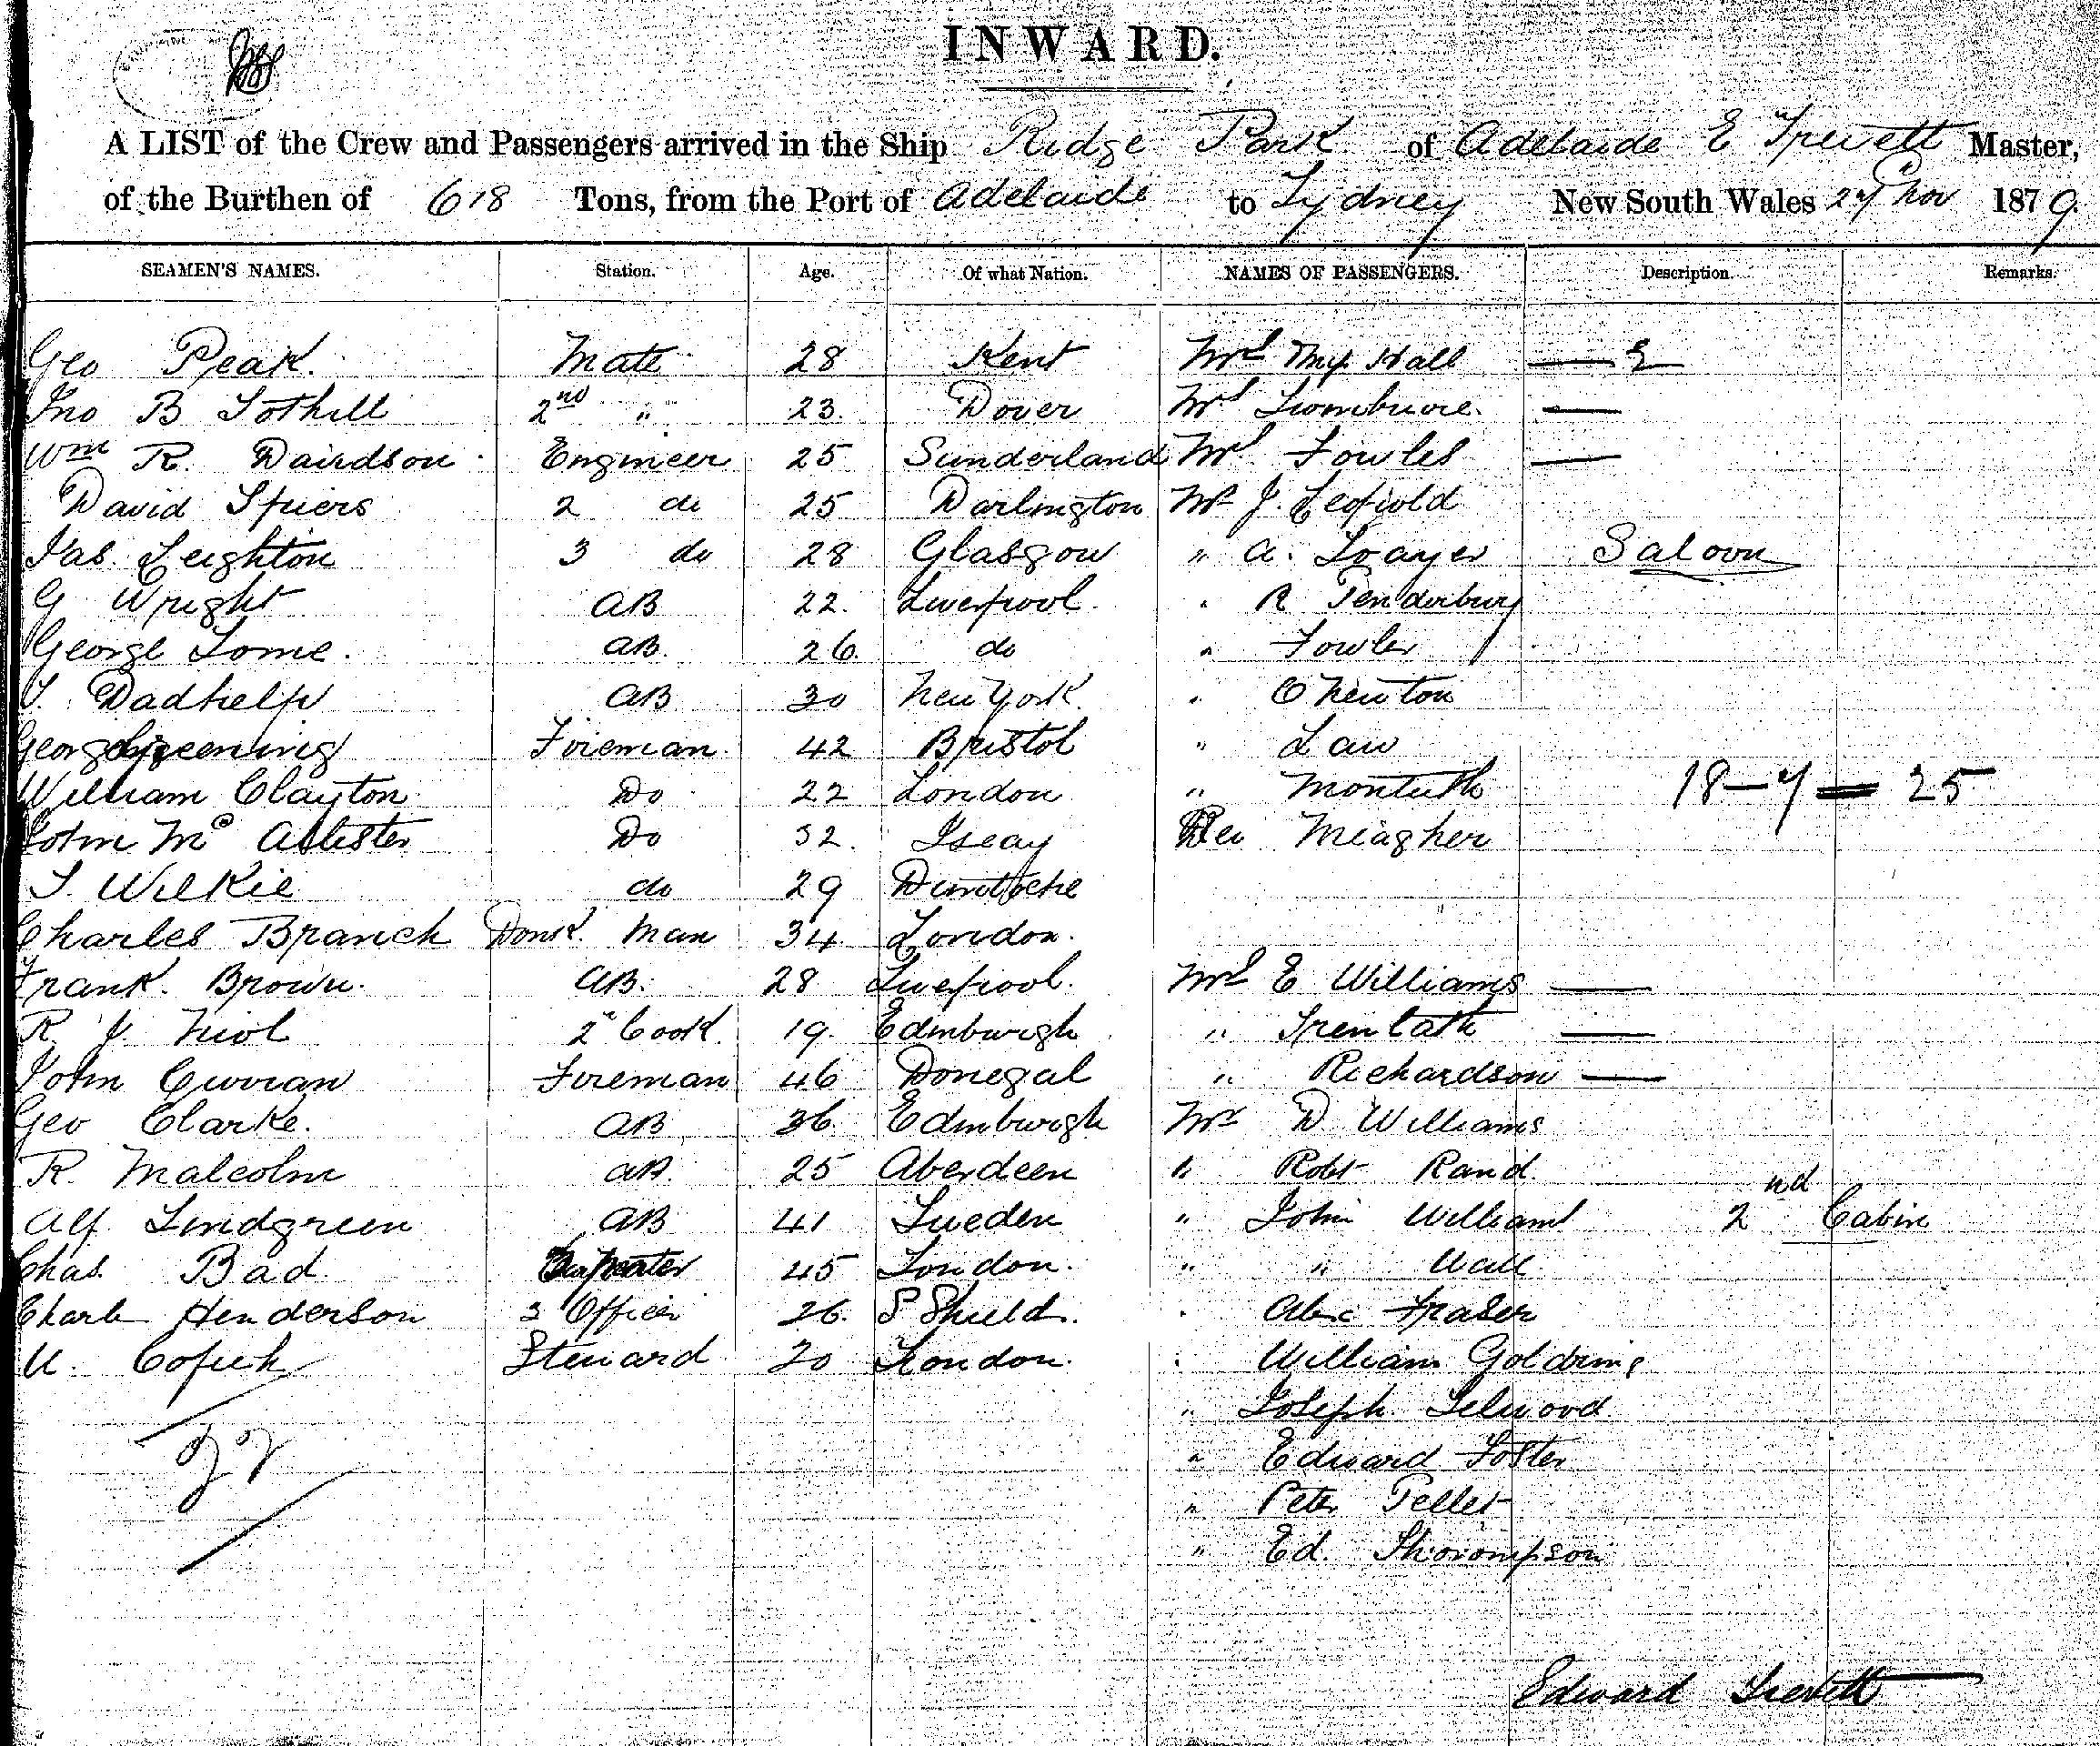 INWARD.
A LIST of the Crew and Passengers arrived in the Ship Ridge Park of Adelaide E Trevett Master,
of the Burthen of 618 Tons, from the Port of Adelaide to Sydney New South Wales 27 Nov 1879.
SEAMEN'S NAMES. Station. Age. Of what Nation. NAMES OF PASSENGERS. Description. Remarks.
Geo Peak. Mate 28 Kent Mrs Hall — 2
Jno B Tothill 2nd " 23. Dover Mrs —
Wm R. Davidson Engineer 25 Sunderland Mrs Fowles —
David Spiers 2 do 25 Darlington Mr J. Leopold
Jas Leighton 3 do 28 Glasgow " A. Sayer Saloon
G Wright AB 22. Liverpool " R Penderbury
George Lome. AB. 26. do " Fowler
T. Dadhelp AB 30 New York. " C Newton
George Greening Fireman 42 Bristol " Law
William Clayton Do 22 London " Monteith 18 – 7 — 25
John Mc Allister Do 32. Iseay Rev Meagher
T. Wilkie do 29
Charles Branch Donk. Man 34 London.
Frank. Brown. AB. 28 Liverpool. Mrs E Williams —
R. J. Nicol 2d Cook. 19. Edinburgh " Trenlath —
John Curran Fireman 46 Donegal " Richardson —
Geo Clarke. AB 36 Edinburgh Mr D Williams
R. Malcolm AB. 25 Aberdeen " Robt Rand.
Alf. Lindgreen AB 41 Sweden " John Williams 2nd Cabin
Chas. Bad Carpenter 45 London. " " Wall
Charls Henderson 3 Officer 26. S Shield. " Alex Fraser
Steward 20 London. " William Goldring
" Joseph Selwood
" Edward Foster
" Peter Pellet
" Ed. Thorompson
Edward Trevett